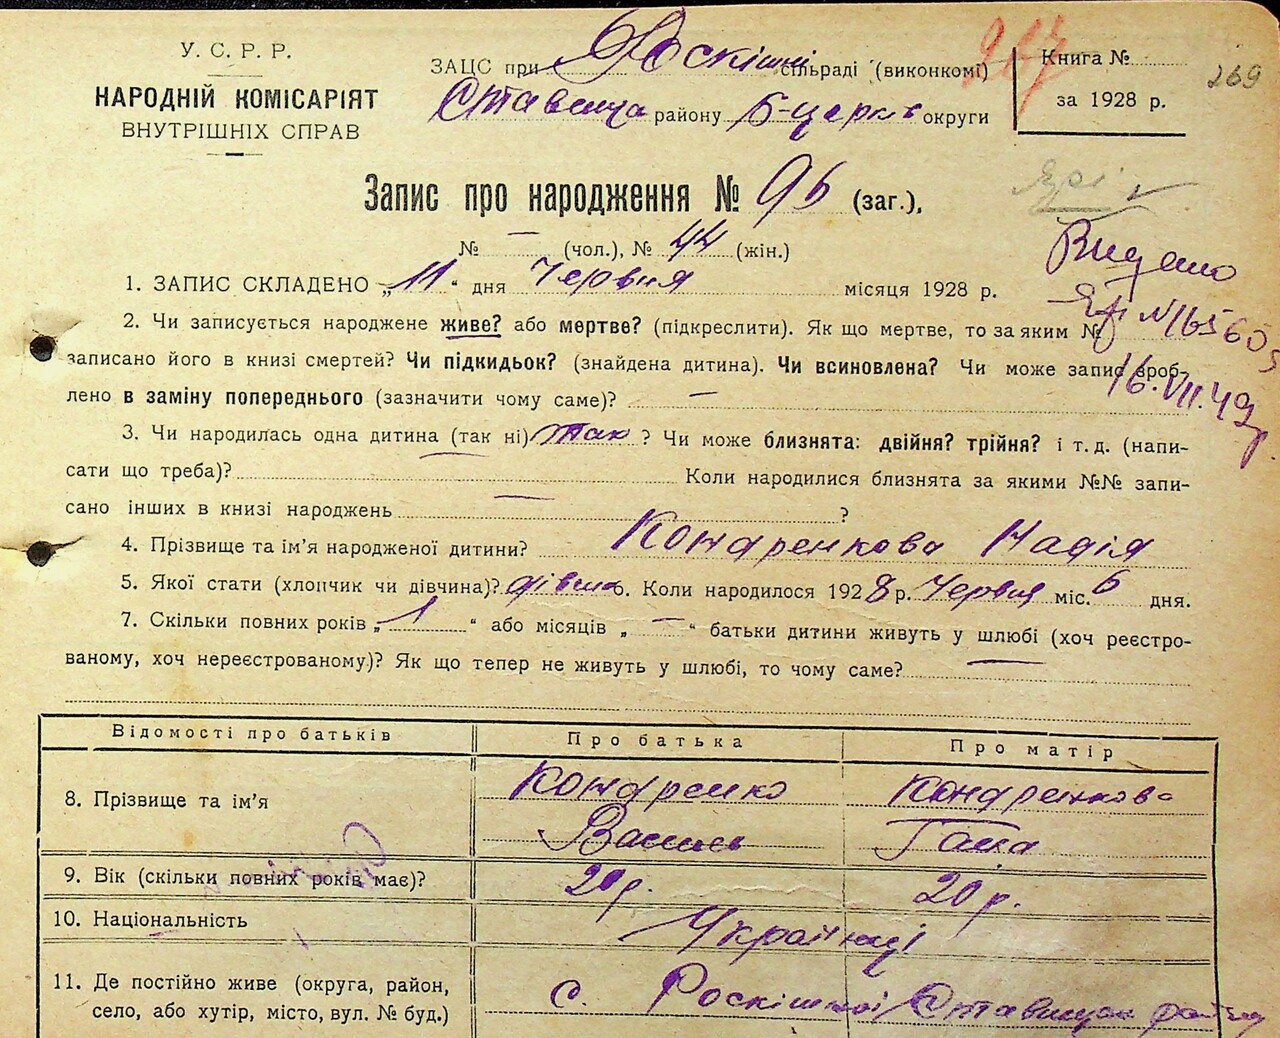 У. С. Р. Р.
НАРОДНІЙ КОМІСАРІЯТ
ВНУТРІШНІХ СПРАВ
ЗАЦС при Роскішні сільраді (виконкомі)
Ставища району Б-церків округи
Книга №
269
за 1928 р.
Запис про народження № 96 (заг.),
№ — (чол.), № 44 (жін.)
Видано
1. ЗАПИС СКЛАДЕНО „11“ дня Червня місяця 1928 р.
2. Чи записується народжене живе? або мертве? (підкреслити). Як що мертве, то за яким №
записано його в книзі смертей? Чи підкидьок? (знайдена дитина). Чи всиновлена? Чи може запис зроб-
16.VII.49р.
лено в заміну попереднього (зазначити чому саме)? —
3. Чи народилась одна дитина (так ні) так ? Чи може близнята: двійня? трійня? і т. д. (напи-
сати що треба)? Коли народилися близнята за якими №№ запи-
сано інших в книзі народжень — ?
4. Прізвище та ім'я народженої дитини? Кондренкова Надія
5. Якої стати (хлопчик чи дівчина)? 6. Коли народилося 1928 р. Червня міс. 6 дня.
7. Скільки повних років „ 1 “ або місяців „ — “ батьки дитини живуть у шлюбі (хоч реєстро-
ваному, хоч нереєстрованому)? Як що тепер не живуть у шлюбі, то чому саме? —
Відомості про батьків
Про батька
Про матір
8. Прізвище та ім'я
Кондренко
Василь
Кондренкова
Гана
9. Вік (скільки повних років має)?
20 р.
20 р.
10. Національність
Українці
11. Де постійно живе (округа, район,
село, або хутір, місто, вул. № буд.)
с. Роскішної Ставищан району